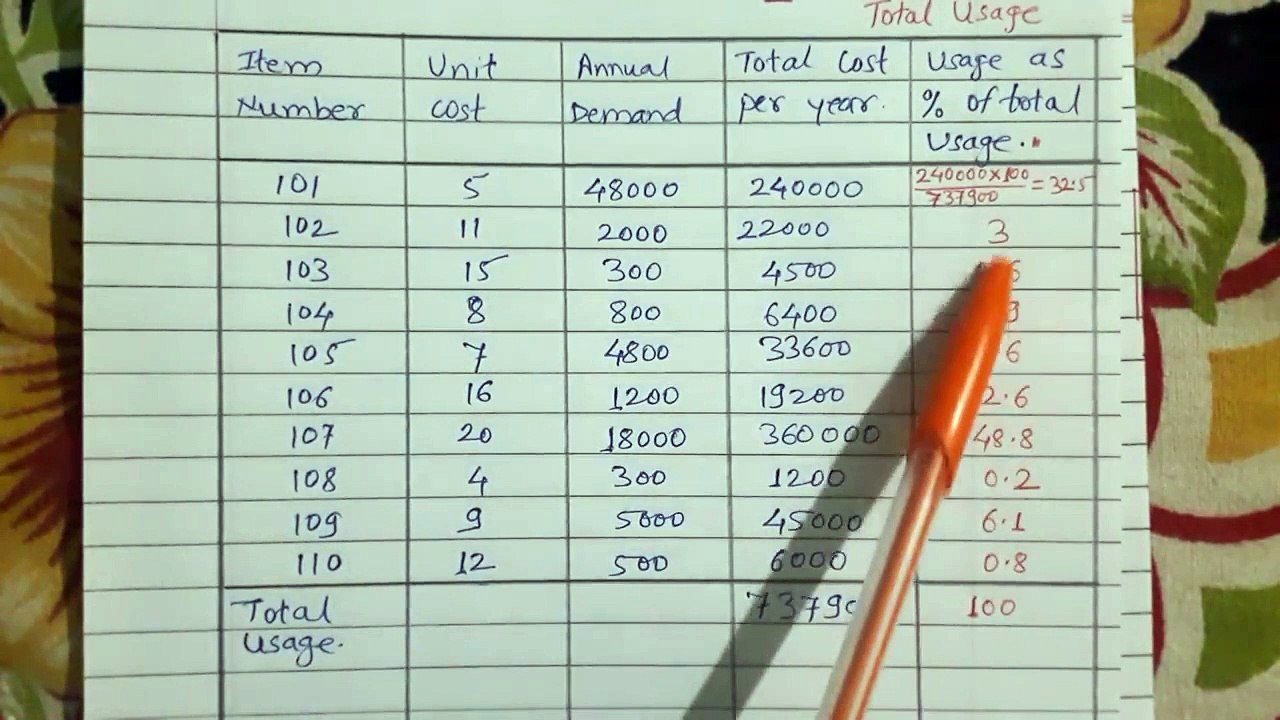 Total Usage
Item Unit Annual Total Cost Usage as
Number cost Demand per year. % of total
Usage.
101 5 48000 240000 240000x100/737900 = 32.5
102 11 2000 22000 3
103 15 300 4500
104 8 800 6400
105 7 4800 33600 6
106 16 1200 19200 2.6
107 20 18000 360000 48.8
108 4 300 1200 0.2
109 9 5000 45000 6.1
110 12 500 6000 0.8
Total 100
Usage.